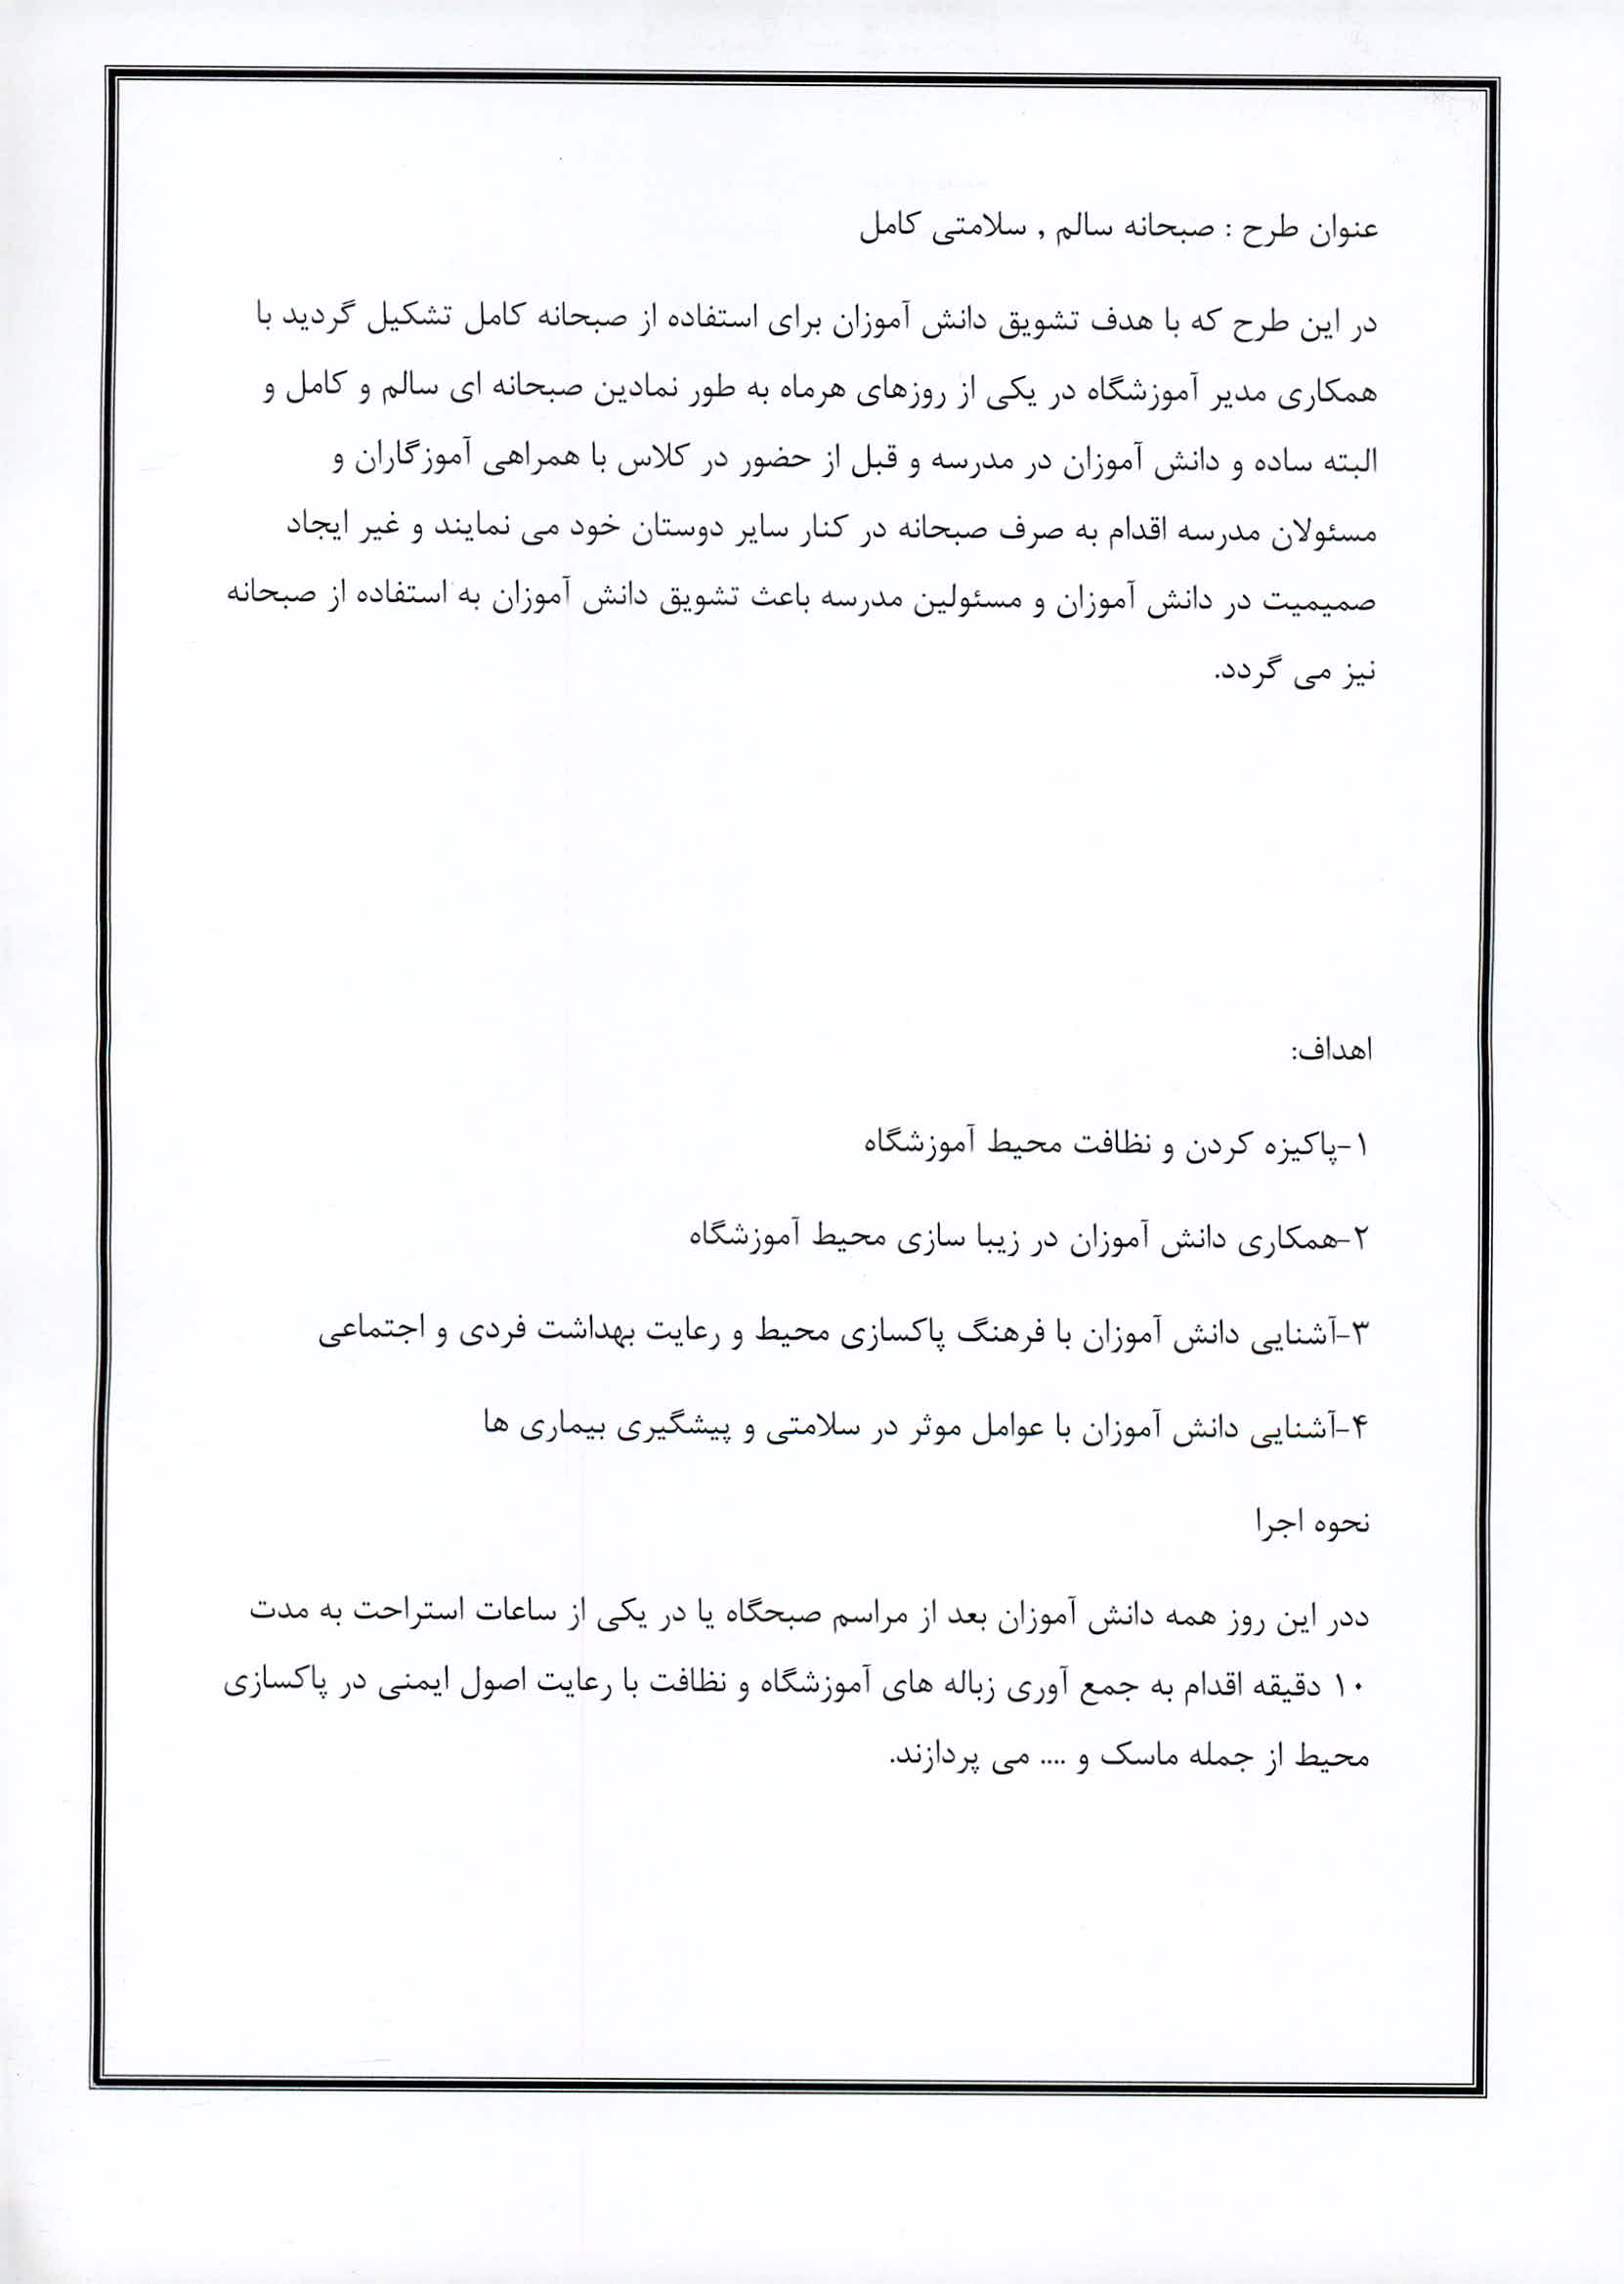 عنوان طرح : صبحانه سالم , سلامتی کامل
در این طرح که با هدف تشویق دانش آموزان برای استفاده از صبحانه کامل تشکیل گردید با
همکاری مدیر آموزشگاه در یکی از روزهای هرماه به طور نمادین صبحانه ای سالم و کامل و
البته ساده و دانش آموزان در مدرسه و قبل از حضور در کلاس با همراهی آموزگاران و
مسئولان مدرسه اقدام به صرف صبحانه در کنار سایر دوستان خود می نمایند و غیر ایجاد
صمیمیت در دانش آموزان و مسئولین مدرسه باعث تشویق دانش آموزان به استفاده از صبحانه
نیز می گردد.
اهداف:
۱-پاکیزه کردن و نظافت محیط آموزشگاه
۲-همکاری دانش آموزان در زیبا سازی محیط آموزشگاه
۳-آشنایی دانش آموزان با فرهنگ پاکسازی محیط و رعایت بهداشت فردی و اجتماعی
۴-آشنایی دانش آموزان با عوامل موثر در سلامتی و پیشگیری بیماری ها
نحوه اجرا
ددر این روز همه دانش آموزان بعد از مراسم صبحگاه یا در یکی از ساعات استراحت به مدت
۱۰ دقیقه اقدام به جمع آوری زباله های آموزشگاه و نظافت با رعایت اصول ایمنی در پاکسازی
محیط از جمله ماسک و .... می پردازند.